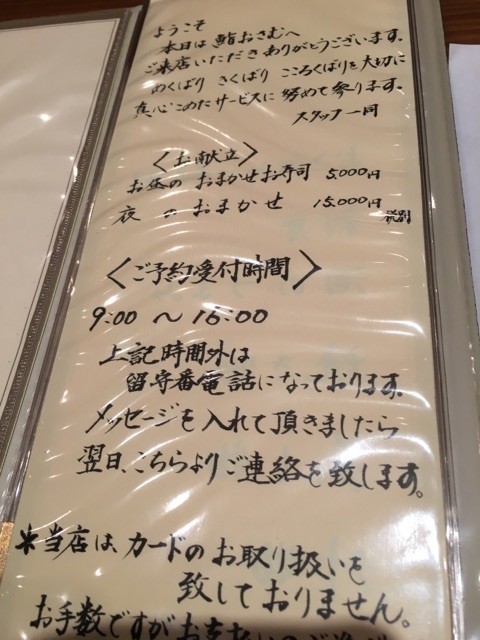 ようこそ
本日は 鮨おさむへ
ご来店いただきありがとうございます。
めくばり きくばり こころくばりを大切に
真心こめたサービスに努めて参ります。
スタッフ一同
〈お献立〉
お昼の おまかせお寿司 5,000円
夜 の おまかせ 15,000円
税別
〈ご予約受付時間〉
9:00 〜 16:00
上記時間外は
留守番電話になっております。
メッセージを入れて頂きましたら
翌日、こちらよりご連絡を致します。
*当店は、カードのお取り扱いを
致しておりません。
お手数ですがお支払い